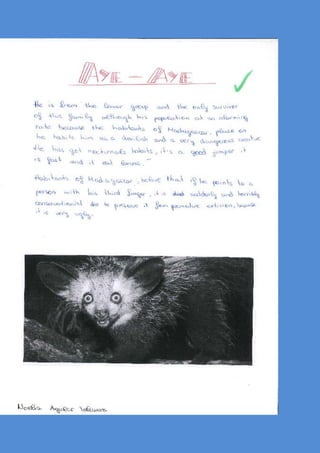 AYE - AYE
He is from the lemur group and the only surviver
of this family although his population at an alarming
rate because the habitants of Madagascar, place on
he habits him as a devilish and a very dangerous creative
He has got nocturnals habits, it's a good jumper it
is fast and it eat
Habitants of Madagascar, believe that if he points to a
person with his third finger, it's suddenly and terribly
conservationist do to preserve it from primative extinion, because
it is very ugly.
Aguilar